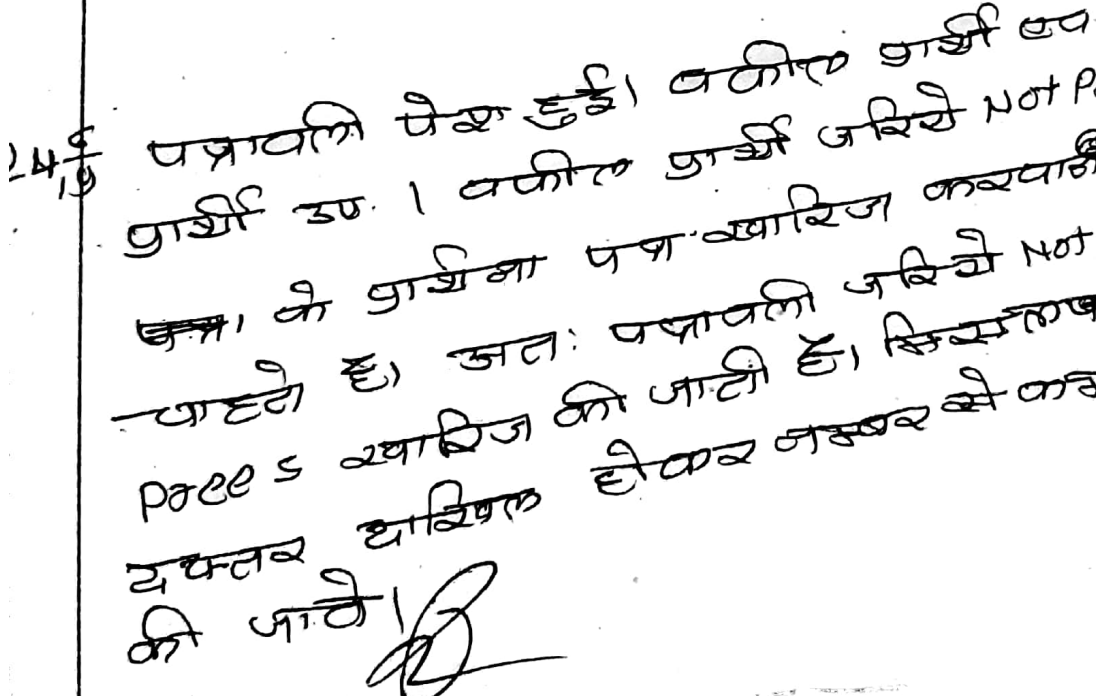 24/6/19 पत्रावली पेश हुई। वकील प्रार्थी एव
प्रार्थी उप. । वकील प्रार्थी जरिये Not P
के प्रार्थना पत्र खारिज करवाने
चाहते है। अतः पत्रावली जरिये Not
Prees खारिज की जाती है। मिसल
दफ्तर दाखिल होकर नम्बर से कम
की जावे।